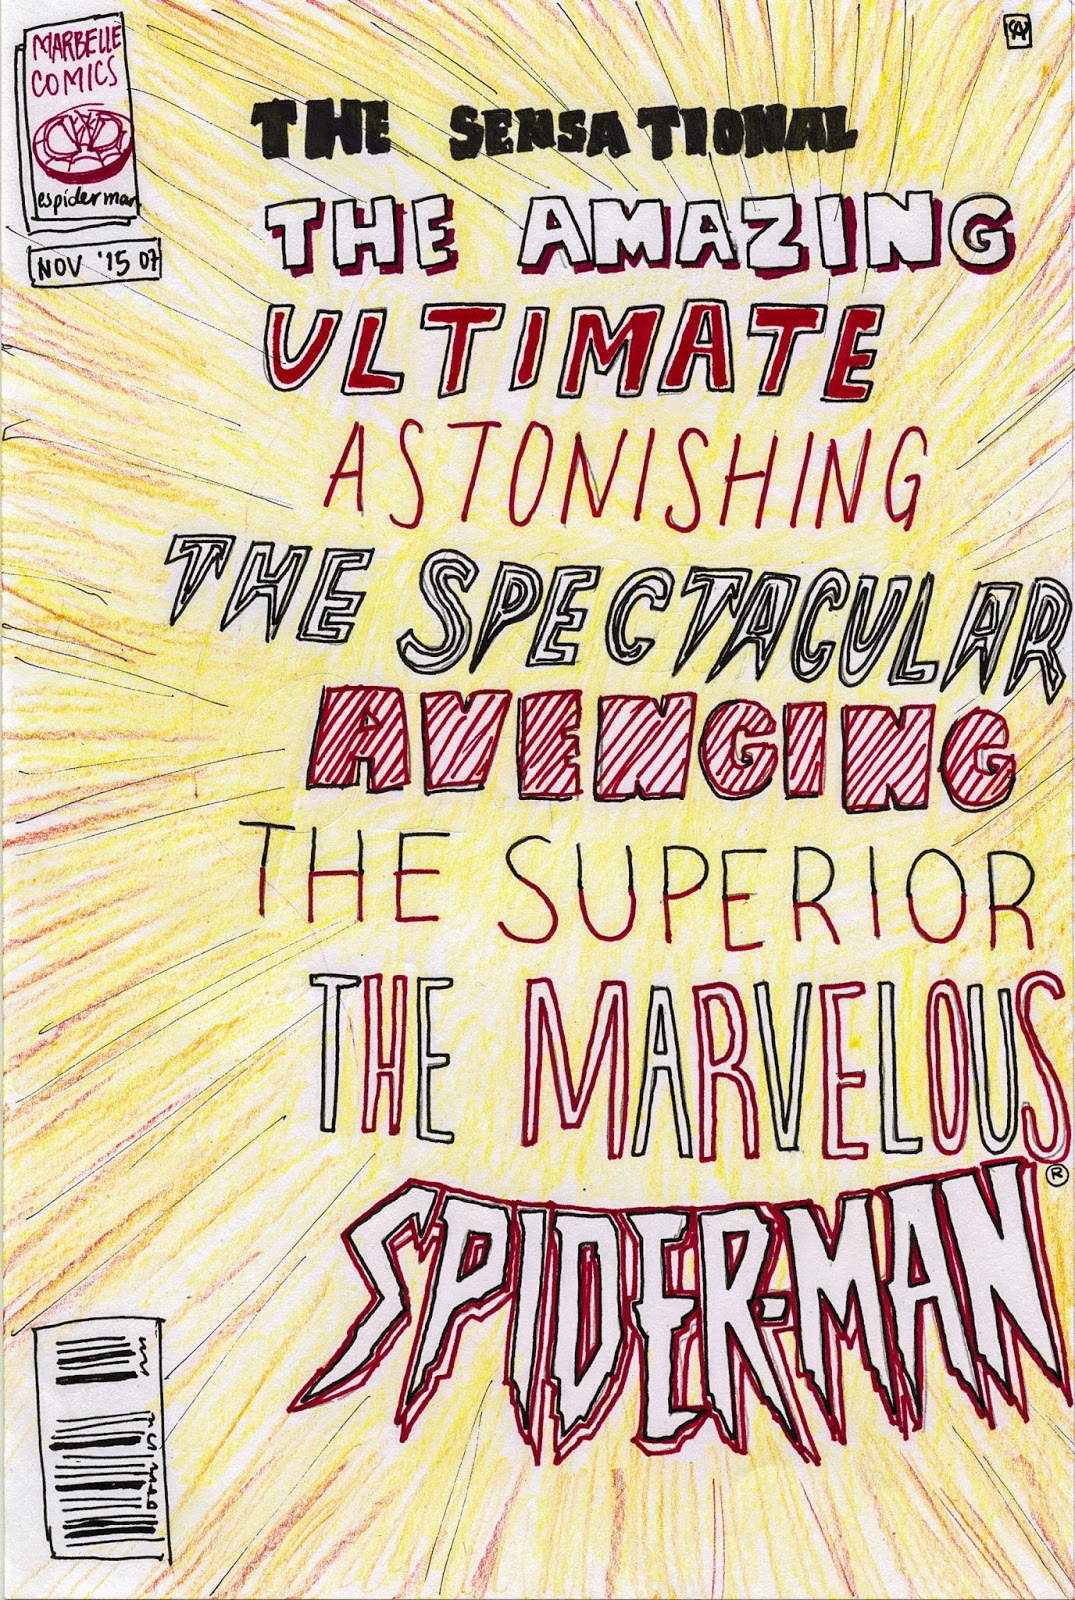 MARBELLE
COMICS
espiderman
NOV '15 07
THE SENSATIONAL
THE AMAZING
ULTIMATE
ASTONISHING
THE SPECTACULAR
AVENGING
THE SUPERIOR
THE MARVELOUS
SPIDER-MAN
®